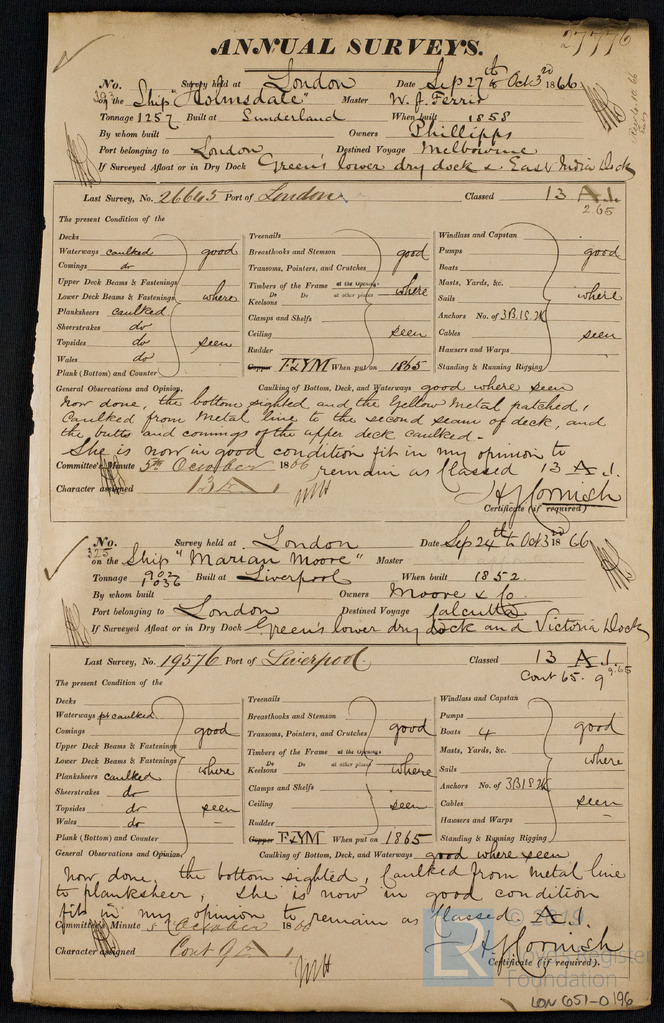 27776
ANNUAL SURVEYS.
No. 393 Survey held at London Date Sep 27th & Oct 3rd 1866
on the Ship "Holmsdale" Master W. J. Ferris
Tonnage 1257 Built at Sunderland When built 1858
By whom built Owners Phillipps
Port belonging to London Destined Voyage Melbourne
If Surveyed Afloat or in Dry Dock Green's lower dry dock & East India Dock
Last Survey, No. 26645 Port of London Classed 13 A.1.
2 65
The present Condition of the
Decks
Waterways caulked good
Comings do
Upper Deck Beams & Fastenings
Lower Deck Beams & Fastenings where
Planksheers caulked
Sheerstrakes do
Topsides do seen
Wales do
Plank (Bottom) and Counter
Treenails
Breasthooks and Stemson good
Transoms, Pointers, and Crutches
Timbers of the Frame at the Openings where
Do Do at other places
Keelsons
Clamps and Shelfs
Ceiling seen
Rudder
Copper F&YM When put on 1865
Windlass and Capstan
Pumps good
Boats
Masts, Yards, &c.
Sails where
Anchors No. of 3B1S2K
Cables seen
Hausers and Warps
Standing & Running Rigging
General Observations and Opinion, Caulking of Bottom, Deck, and Waterways good where seen
now done, the bottom sighted and the Yellow Metal patched,
Caulked from Metal line to the second seam of deck, and
the butts and comings of the upper deck caulked -
She is now in good condition fit in my opinion to
Committee's Minute 5th October 1866 remain as Classed 13 A.1.
Character assigned 13 A 1
H J Cornish
Certificate (if required)
No. 325 Survey held at London Date Sep 24th to Oct 3rd 1866
on the Ship "Marian Moore" Master
Tonnage 902 1036 Built at Liverpool When built 1852
By whom built Owners Moore & Co
Port belonging to London Destined Voyage Calcutta
If Surveyed Afloat or in Dry Dock Green's lower dry dock and Victoria Dock
Last Survey, No. 19576 Port of Liverpool Classed 13 A.1.
Cont 65. 9 9.65
The present Condition of the
Decks
Waterways pt caulked
Comings good
Upper Deck Beams & Fastenings
Lower Deck Beams & Fastenings where
Planksheers caulked
Sheerstrakes do
Topsides do seen
Wales do
Plank (Bottom) and Counter
Treenails
Breasthooks and Stemson
Transoms, Pointers, and Crutches good
Timbers of the Frame at the Openings
Do Do at other places
Keelsons where
Clamps and Shelfs
Ceiling seen
Rudder
Copper F&YM When put on 1865
Windlass and Capstan
Pumps
Boats 4 good
Masts, Yards, &c.
Sails where
Anchors No. of 3B1S2K
Cables seen
Hausers and Warps
Standing & Running Rigging
General Observations and Opinion, Caulking of Bottom, Deck, and Waterways good where seen
now done, the bottom sighted, Caulked from Metal line
to planksheer, She is now in good condition
fit in my opinion to remain as Classed A.1.
Committee's Minute 5 October 1866
Character assigned Cont 9 A 1
H J Cornish
Certificate (if required).
LR
Foundation
LON 651-0196